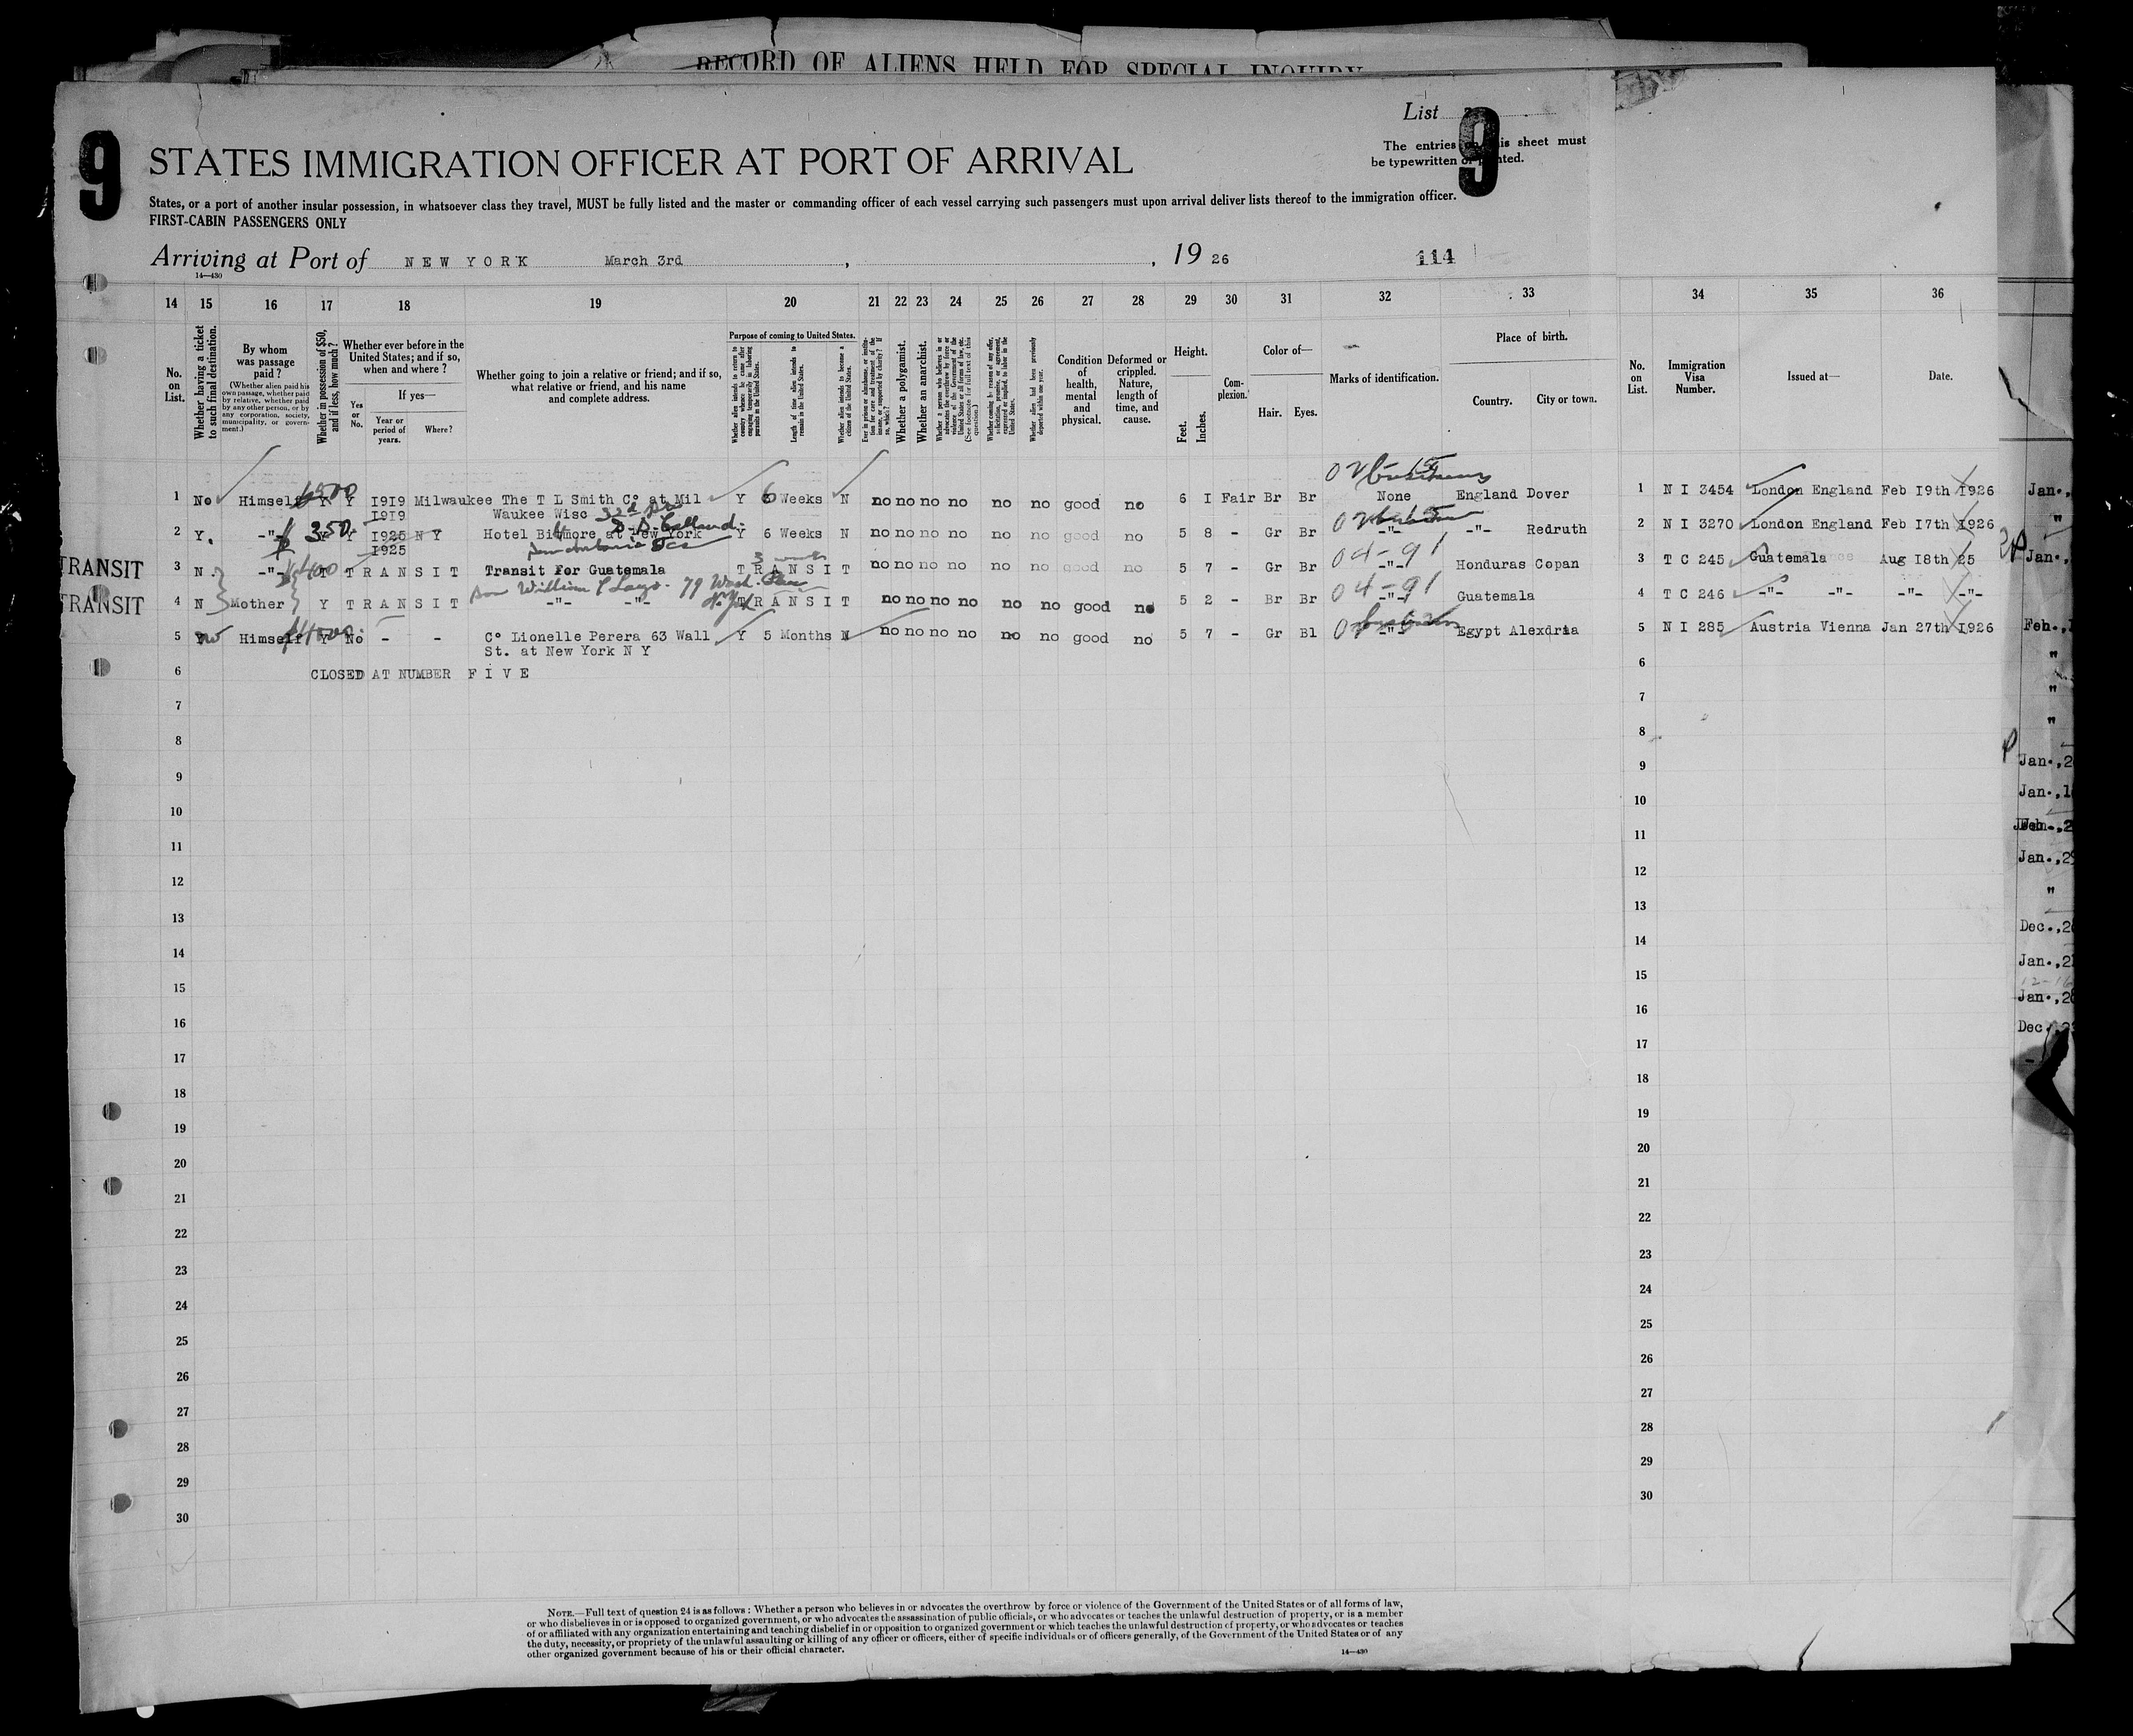 RECORD OF ALIENS HELD FOR SPECIAL INQUIRY
List
9
9
The entries on this sheet must
be typewritten or printed.
STATES IMMIGRATION OFFICER AT PORT OF ARRIVAL
States, or a port of another insular possession, in whatsoever class they travel, MUST be fully listed and the master or commanding officer of each vessel carrying such passengers must upon arrival deliver lists thereof to the immigration officer.
FIRST-CABIN PASSENGERS ONLY
Arriving at Port of NEW YORK March 3rd, , 19 26 114
14—430
14 15 16 17 18 19 20 21 22 23 24 25 26 27 28 29 30 31 32 33 34 35 36
No. on List.
Whether having a ticket to such final destination.
By whom was passage paid?
(Whether alien paid his own passage, whether paid by relative, whether paid by any other person, or by any corporation, society, municipality, or government.)
Whether in possession of $50, and if less, how much?
Whether ever before in the United States; and if so, when and where?
Yes or No.
If yes—
Year or period of years.
Where?
Whether going to join a relative or friend; and if so, what relative or friend, and his name and complete address.
Purpose of coming to United States.
Whether alien intends to return to country whence he came after engaging temporarily in laboring pursuits in the United States.
Length of time alien intends to remain in the United States.
Whether alien intends to become a citizen of the United States.
Ever in prison or almshouse, or institution for care and treatment of the insane, or supported by charity? If so, which?
Whether a polygamist.
Whether an anarchist.
Whether a person who believes in or advocates the overthrow by force or violence of the Government of the United States or all forms of law, etc. (See footnote for full text of this question.)
Whether coming by reason of any offer, solicitation, promise, or agreement, expressed or implied, to labor in the United States.
Whether alien had been previously deported within one year.
Condition of health, mental and physical.
Deformed or crippled. Nature, length of time, and cause.
Height.
Feet. Inches.
Complexion.
Color of—
Hair. Eyes.
Marks of identification.
Place of birth.
Country. City or town.
No. on List.
Immigration Visa Number.
Issued at—
Date.
1 No Himself Y Y 1919 Milwaukee The T L Smith Co at Mil Y 6 Weeks N no no no no no no good no 6 1 Fair Br Br None England Dover 1 N I 3454 London England Feb 19th 1926
1919 Waukee Wisc
2 Y. -"- 350 Y 1925 N Y Hotel Biltmore at New York Y 6 Weeks N no no no no no no good no 5 8 - Gr Br -"- -"- Redruth 2 N I 3270 London England Feb 17th 1926
1925
3 weeks
TRANSIT 3 N. -"- $400 TRANSIT Transit For Guatemala TRANSIT no no no no no no good no 5 7 - Gr Br 04-91 -"- Honduras Copan 3 T C 245 Guatemala Aug 18th 25
Son William 79 Wash.
N.Y.
TRANSIT 4 N Mother Y TRANSIT -"- -"- TRANSIT no no no no no no good no 5 2 - Br Br 04-91 -"- Guatemala 4 T C 246 -"- -"- -"- -"-
5 no Himself Y No - - Co Lionelle Perera 63 Wall Y 5 Months N no no no no no no good no 5 7 - Gr Bl -"- Egypt Alexdria 5 N I 285 Austria Vienna Jan 27th 1926
St. at New York N Y
6 CLOSED AT NUMBER FIVE 6
7 7
8 8
9 9
10 10
11 11
12 12
13 13
14 14
15 15
16 16
17 17
18 18
19 19
20 20
21 21
22 22
23 23
24 24
25 25
26 26
27 27
28 28
29 29
30 30
Jan.,
"
Jan.,
Feb.,
"
"
"
Jan.,2
Jan.,1
Jan.,2
"
Dec.,2
Jan.,2
Jan.,2
Dec
NOTE.—Full text of question 24 is as follows: Whether a person who believes in or advocates the overthrow by force or violence of the Government of the United States or of all forms of law,
or who disbelieves in or is opposed to organized government, or who advocates the assassination of public officials, or who advocates or teaches the unlawful destruction of property, or is a member
of or affiliated with any organization entertaining and teaching disbelief in or opposition to organized government or which teaches the unlawful destruction of property, or who advocates or teaches
the duty, necessity, or propriety of the unlawful assaulting or killing of any officer or officers, either of specific individuals or of officers generally, of the Government of the United States or of any
other organized government because of his or their official character.
14—430